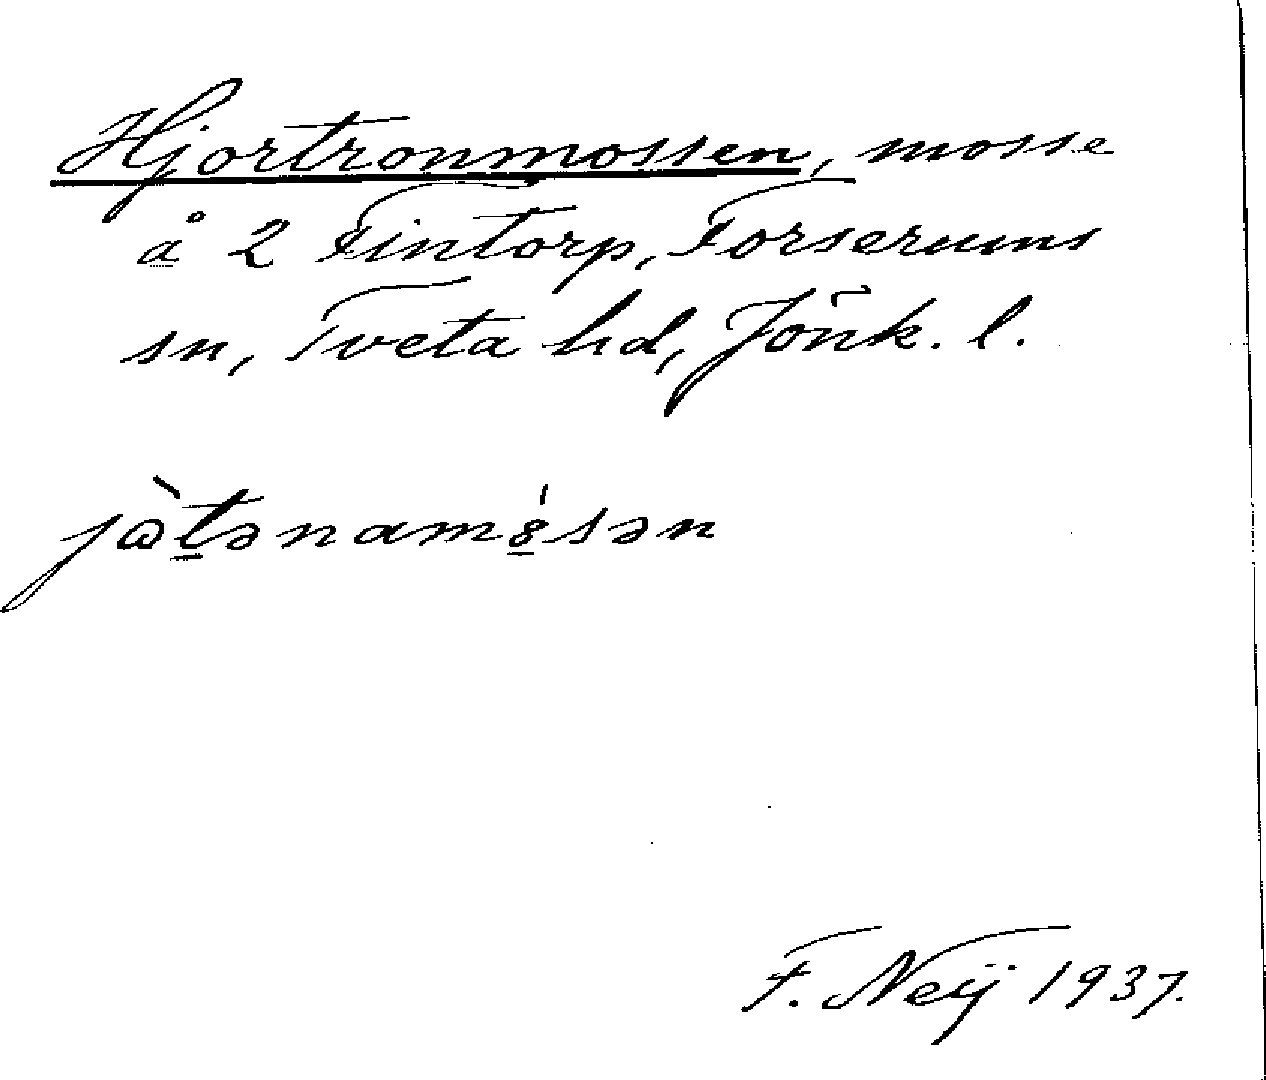 Hjortronmossen, mosse
å 2 Fintorp, Forserums
sn, Tveta hd, Jönk. l.
F. Neij 1937.